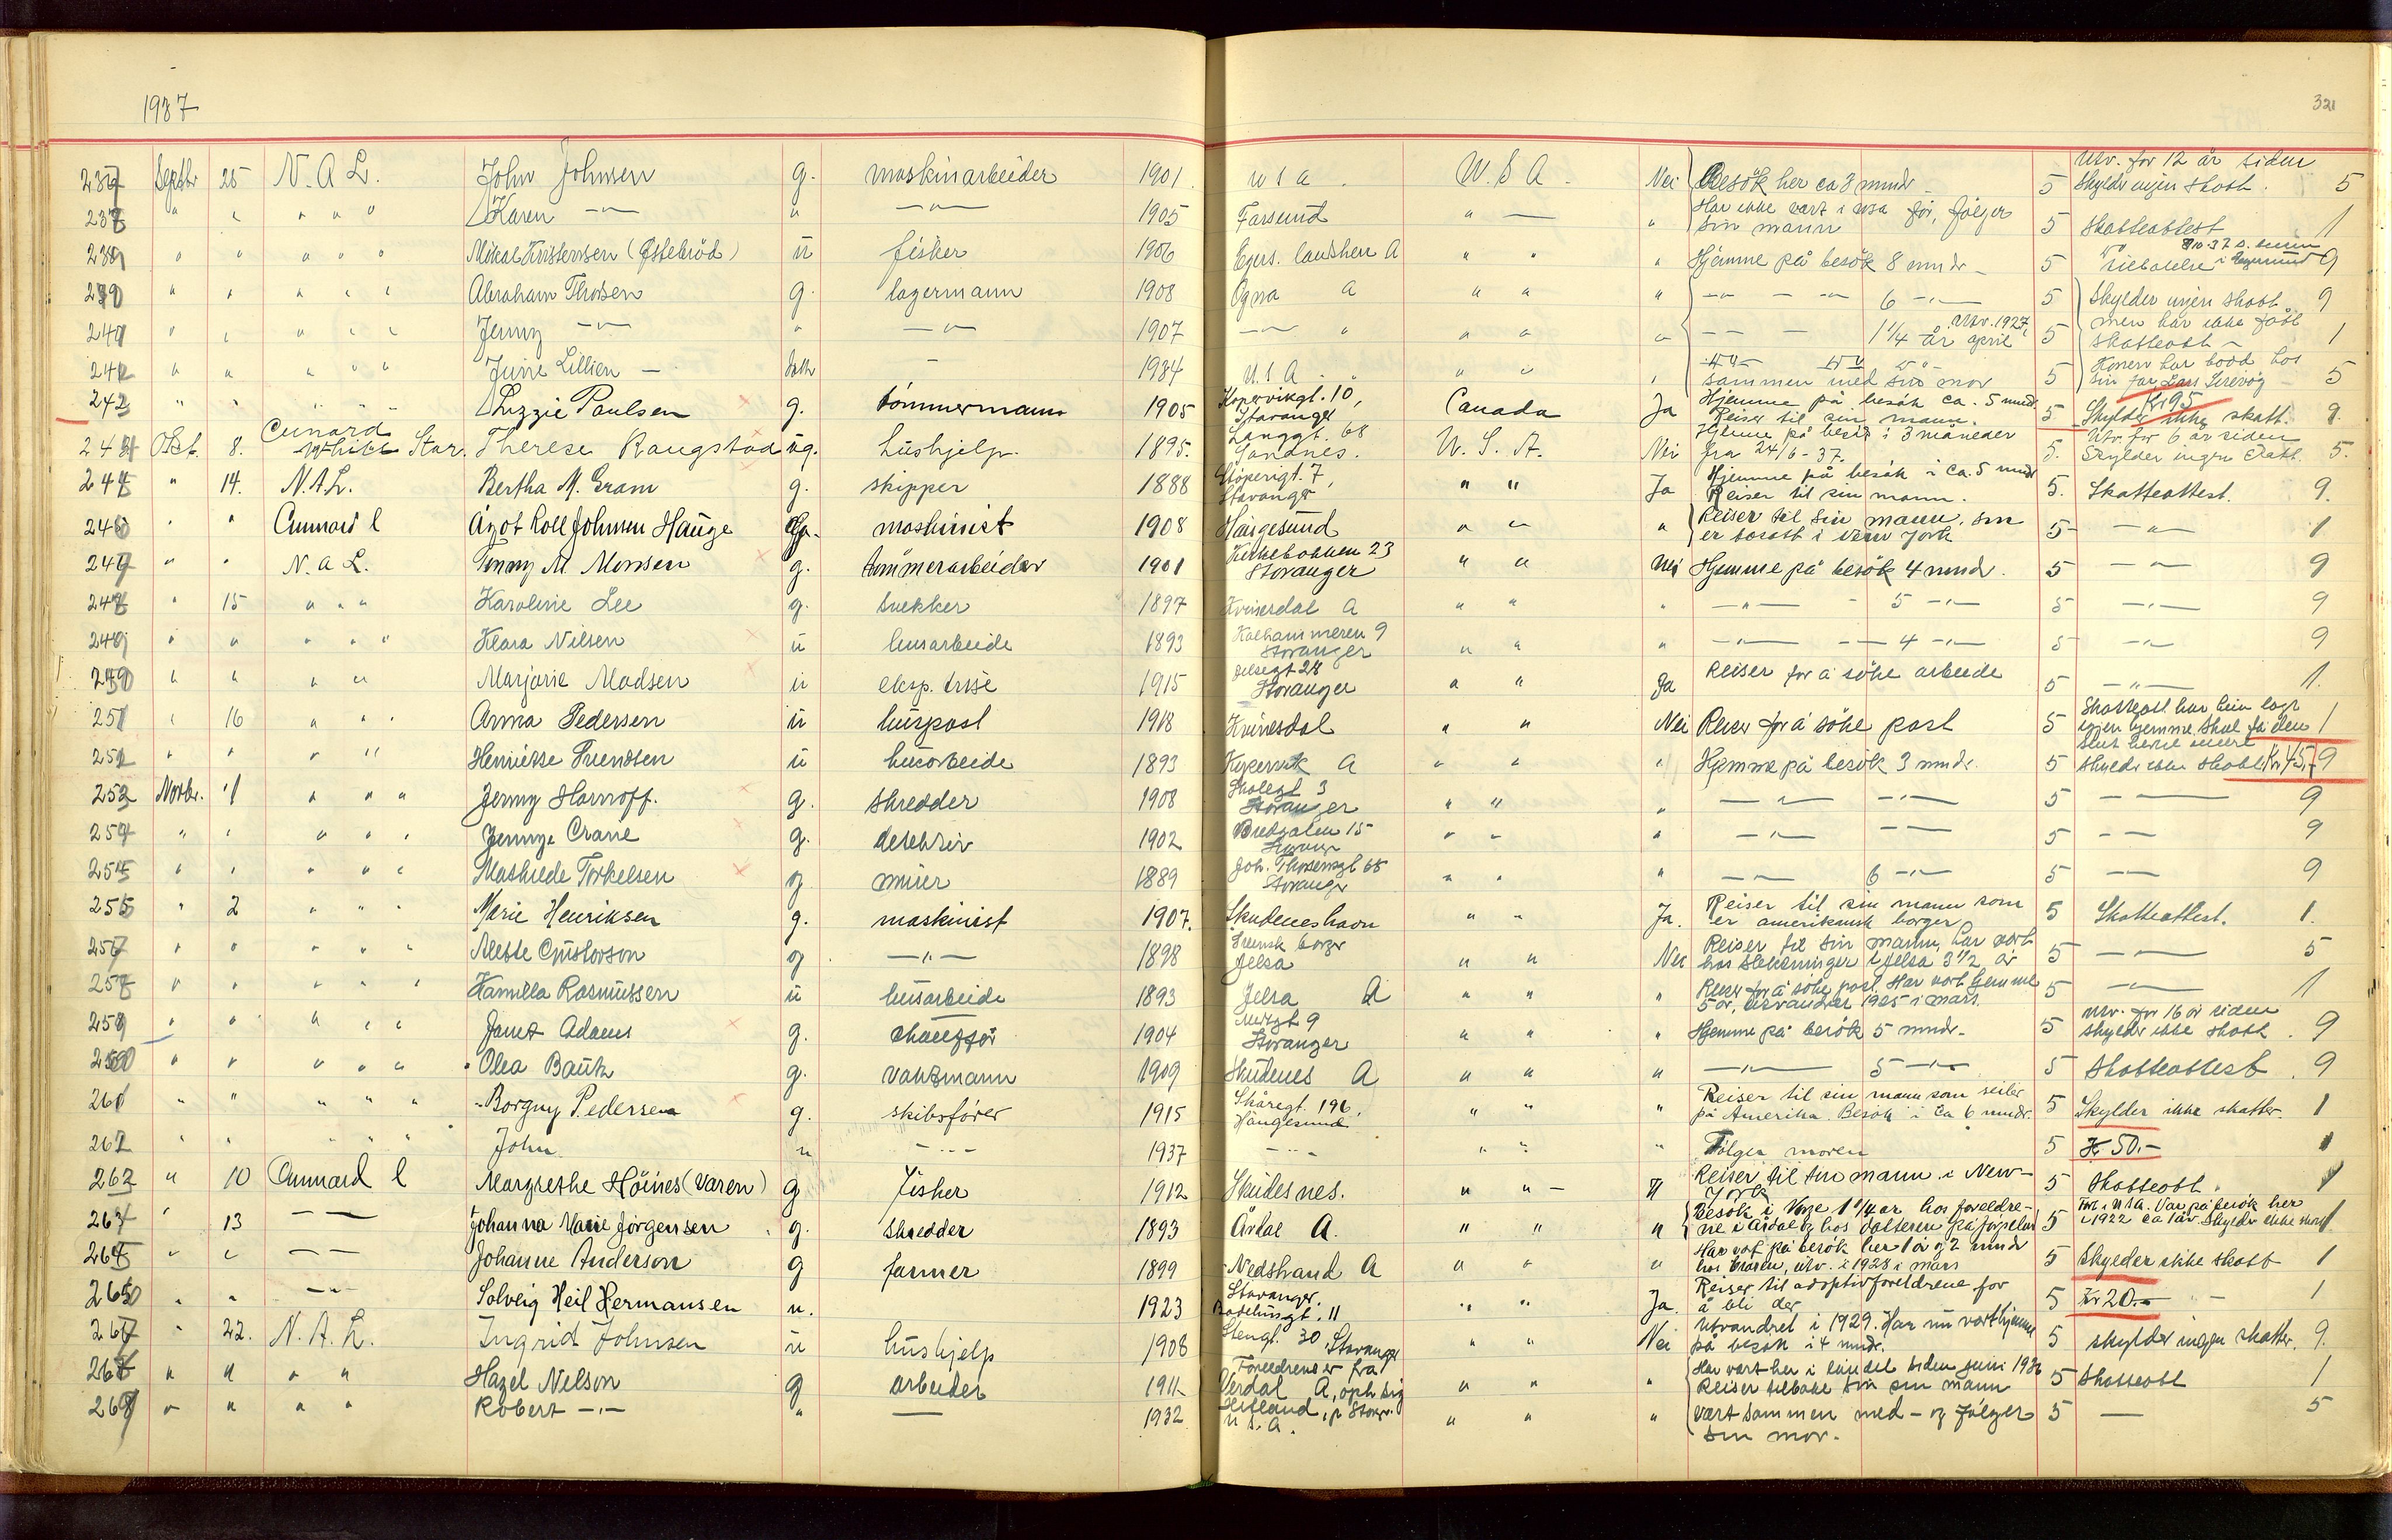 1937
321
237 Septbr 25 N. A L. John Johnsen g. maskinarbeider 1901 U S A. U. S A. Nei Besök her ca 3 mndr. 5 Utv. for 12 år siden skylder ingen skatt. 5
238 " " " " " Karen —"— " —"— 1905 Farsund " — " Har ikke vært i USA för, fölger sin mann 5 Skatteattest 1
239 " " " " " Mikal Kristensen (Östebröd) u fisker 1906 Egers. landsherr A " " " Hjemme på besök 8 mndr — 5 9
" " " " " Abraham Thorsen g. lagermann 1908 Ogna A " " " —"— — —"— 6 —"— 5 Skylder ingen skatt 9
" " " " " Jenny —"— " —"— 1907 —"— " " " " — — — 1 1/4 år Utv. 1927, april 5 men har ikke fått skatteatt — 1
" " " " " Junie Lillien — datter — 1934 U. S A. " " " sammen med sin mor 5 Konen har bodd hos sin far, Lars 5
242 " " " " " Lizzie Paulsen g. tömmermann 1905 Kopervikgt. 10, Stavanger Canada Ja Hjemme på besök ca. 5 mndr. Reiser til sin mann. 5 Kr 95 Skylder ikke skatt. 9.
Oct. 8. Cunard White Star. Therese Raugstad ug. hushjelp. 1895. Langgt. 68 Sandnes. U. S. A. Nei Hjemme på besök i 3 måneder fra 24/6 - 37. 5. Utv. for 6 år siden Skylder ingen skatt. 5.
" 14. N.A.L. Bertha M. Gram g. skipper 1888 Stöperigt. 7, Stavanger " " Ja Hjemme på besök i ca. 5 mndr Reiser til sin mann. 5. Skatteattest. 9.
" " Cunnard l Agot Roll Johnsen Hauge g. maskinist 1908 Haugesund " " " Reiser til sin mann, som er bosatt i New York 5 —"— 1
" " N. A L. Jenny M. Monsen g. tömmerarbeider 1901 Kirkebakken 23 Stavanger " " Nei Hjemme på besök 4 mndr. 5 —"— 9
" 15 " " " Karoline Lee g. snekker 1897 Kvinesdal A " " " —"— " 5 —"— 5 —"— 9
" " " " " Klara Nilsen u husarbeide 1893 Kalhammeren 9 Stavanger " " " —"— — 4 —"— 5 —"— 9
" " " " Marjorie Madsen u eksp. trise 1915 Jelsagt 28 Stavanger " " Ja Reiser for å söke arbeide 5 —"— 1.
251 " 16 " " " Anna Pedersen u huspost 1918 Kvinesdal " " Nei Reiser for å söke post 5 Skatteatt har hun lagt igjen hjemme. Skal få den 1
252 " " " " Henriette Svendsen u husarbeide 1893 Kopervik A " " " Hjemme på besök 3 mndr. 5 skylder ikke skatt Kr. 45,- 9
Novbr. 1 " " " Jenny Harnoff. g. skredder 1908 Skolegt 3 Stavanger " " " —"— —"— 5 —"— 9
254 " " " " " Jennye Crane g. detektiv 1902 Bredgaten 15 Stavanger " " " —"— —"— 5 — — 9
" " " " " Mathilde Torkelsen g murer 1889 Joh. Thorsensgt 68 Stavanger " " " —"— 6 —"— 5 —"— 9
" 2 " " " Marie Henriksen g. maskinist 1907. Skudeneshavn " " Ja. Reiser til sin mann som er amerikansk borger 5 Skatteattest. 1.
" " " " " Mette Gustavson g —"— 1898 Svensk borger Jelsa " " Nei Reiser til sin mann, har vært hos slektninger i Jelsa 3 1/2 år 5 —"— 5
" " " " " Kamilla Rasmussen u husarbeide 1893 Jelsa A " " " Reiser for å söke post. Har vært hjemme 5 år, utvandret 1925 i mars 5 —"— 1
" " " " " Janet Adams g. chaufför 1904 Stavanger " " " Hjemme på besök 5 mndr. 5 Utv. for 16 år siden skylder ikke skatt. 9
" " " " " Olea Bauk g. vaktmann 1909 Skudenes A " " " —"— 5 —"— 5 Skatteattest. 9
261 " " " " " Borgny Pedersen g. skibsförer 1915 Skåregt. 196, Haugesund " " " Reiser til sin mann som seiler på Amerika. Besök i ca 6 mndr. 5 Skylder ikke skatter. 1
262 " " " " " John u — 1937 — " " " Fölger moren 5 Kr 50.— 1
263 " 10 Cunnard l Margrethe Höines (Varen) g fisker 1912 Skudesnes. " " — " Reiser til sin mann i New-York 5 Skatteatt. 1
264 " 13 —"— Johanna Marie Jörgensen g. skredder 1893 Årdal A. " " " Besök i Norge 1 1/4 år hos foreldre-ne i Årdal og hos datteren på Jörpeland 5 Før i USA. Var på besök her i 1922 ca 1 år. Skylder ikke skatt 1
" " — — Johanne Anderson g farmer 1899 Nedstrand A " " " Har vært på besök her 1 år og 2 mndr hos broren, utv. i 1928 i mars 5 Skylder ikke skatt 1
" " —"— Solveig Heil Hermansen u. 1923 Stavanger. 11 " " Ja. Reiser til adoptivforeldrene for å bli der 5 Kr 20.— — 1
267 " 22. N. A. L. Ingrid Johnsen u hushjelp 1908 Stengt. 30, Stavanger " " Nei Utvandret i 1929. Har nu vært hjemme på besök i 4 mndr. 5 skylder ingen skatter. 9.
" " " " Hazel Nelson g arbeider 1911 Foreldrene er fra A, oph. sig " " " Har vært her i landet siden juni 1936 Reiser tilbake til sin mann 5 Skatteatt 1
" " " " Robert —"— " — 1932 U. S. A. " " " Vært sammen med — og fölger sin mor. 5 — 5